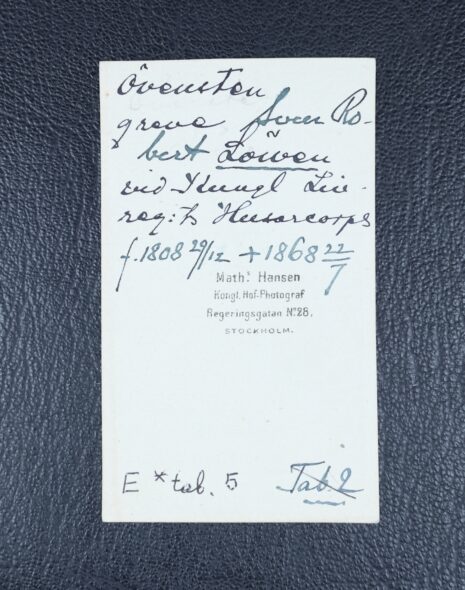 Övensten
greve Sven Ro-
bert Löwen
vid Kungl Liv-
reg:ts Husarcorps
f. 1808 29/12 + 1868 22/7
Maths Hansen
Kongl. Hof-Photograf
Regeringsgatan No 28,
STOCKHOLM.
E * tab. 5 Tab. 2